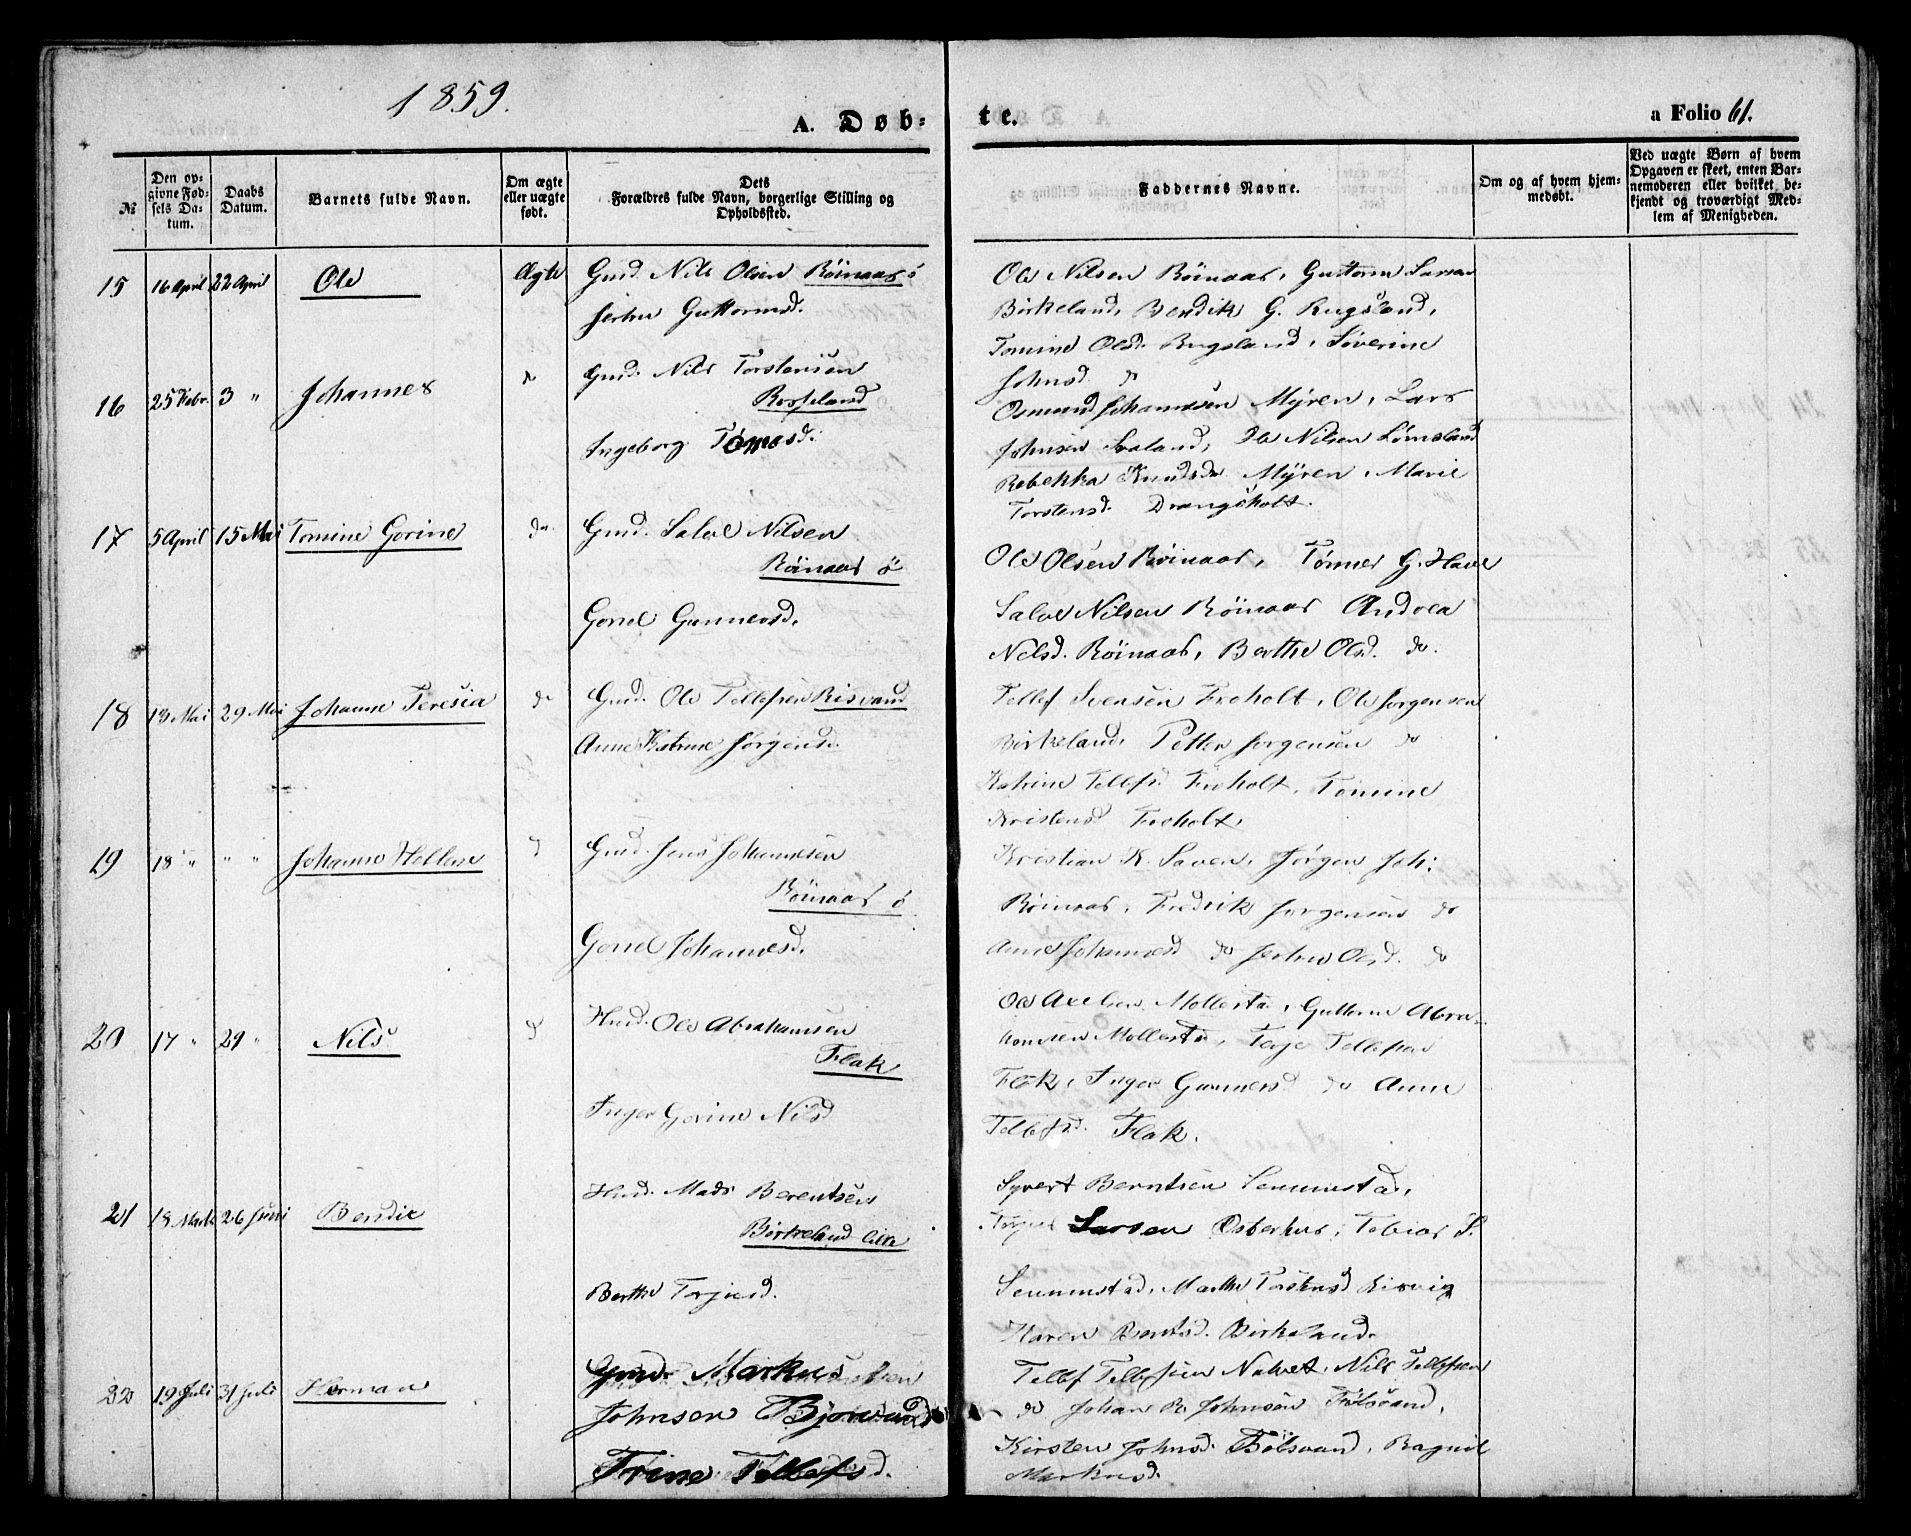 1859.
A. Døb-
te.
a Folio 61.
№
Den op-
givne Fød-
sels Da-
tum.
Daabs
Datum.
Barnets fulde Navn.
Om ægte
eller uægte
født.
Dets
Forældres fulde Navn, borgerlige Stilling og
Opholdssted.
Faddernes Navne.
Om og af hvem hjem-
medøbt.
Ved uægte Børn af hvem
Opgaven er skeet, enten Bar-
nemoderen eller hvilket be-
kjendt og troværdigt Med-
lem af Menigheden.
15 16 April 22 April Ole Ægte Gmd. Nils Olsen Röinaas ö
Guttormsd.
Ole Nilsen Röinaas, Guttorm Larsen
Birkeland, Bendik G. Rugsland,
Tomine Olsd. Rugsland, Severine
Johnsd. do
16 25 Febr. 3 " Johannes do Gmd. Nils Torstensen
Rosseland
Ingeborg Tömesd.
Osmund Johannesen Mÿren, Lars
Johnsen Svaland, Ole Nilsen Lømsland
Rebekka Knudsd. Mÿren, Marie
Torstensd. Drangsholt.
17 5 April 15 Mai Tomine Gorine do Gmd. Salve Nilsen
Röinaas ö
Gorel Gunnersd.
Ole Olsen Röinaas, Tönnes G. Have
Salve Nilsen Röinaas Andrea
Nilsd. Röinaas, Berthe Olsd. do.
18 13 Mai 29 Mai Johanne Teresia do Gmd. Ole Tellefsen Risvand
Anne Katrine Jörgensd.
Tellef Svensen Froholt, Ole Jorgensen
Birkeland, Petter Jorgensen do
Katrine Tellefsd. Froholt, Tomine
Kristensd Froholt.
19 18 " " " Johanne Hellene d Gmd. Jens Johannesen
Röinaas ö
Gorel Johannesd.
Kristian K. Saven, Jørgen Joh:
Röinaas, Fredrik Jorgensen do
Anne Johannesd do Olsd. do
20 17 " 29 " Nils d Husd. Ole Abrahamsen
Flak
Inger Gorine Nilsd
Ole Axelsen Mollestad, Guttorm Abra-
hamsen Mollestad, Terje Tellefsen
Flak, Inger Gunnersd do Anne
Tellefsd. Flak.
21 18 Marts 26 Juni Bendic Husd. Mads Berentsen
Birkeland lille
Berthe Torjusd.
Syvert Berntsen Senumstad,
Larsen Osterhus, Tobias S.
Senumstad, Marthe Torstensd Risvig
Karen Berntsd. Birkeland.
22 19 Juli 31 Juli Herman Gmd. Markus
Johnsen Bjorvand
Trine Tellefsd.
Tellef Tellefsen Natvet, Nils Tellefsen
do Johan R. Johnsen Fölsvand,
Kirsten Johnsd. Fölsvand, Ragnil
Markusd.